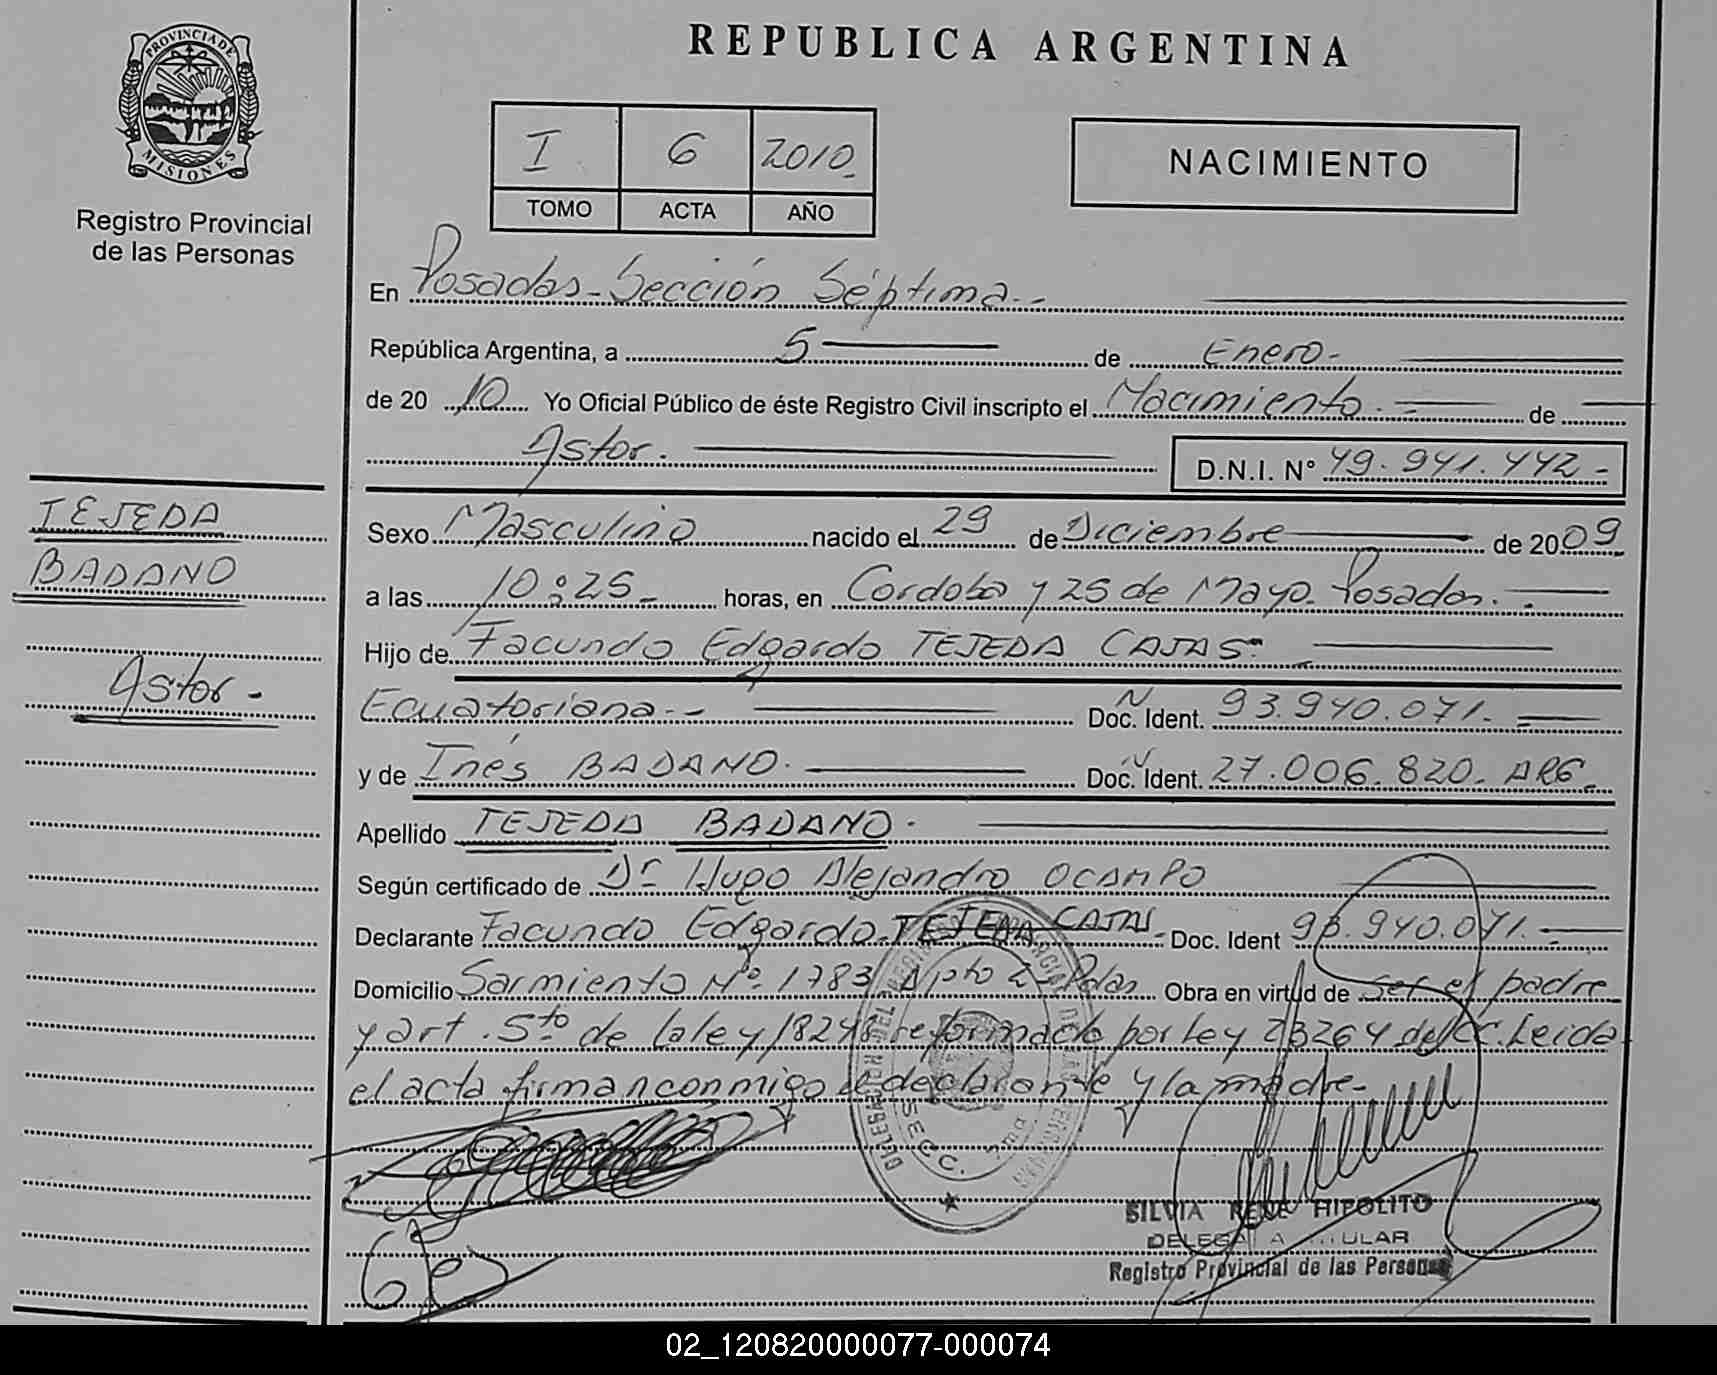 REPUBLICA ARGENTINA
PROVINCIA DE
MISIONES
Registro Provincial
de las Personas
I 6 2010
TOMO ACTA AÑO
NACIMIENTO
En Posadas - Sección Séptima.-
República Argentina, a 5 de Enero-
de 2010 Yo Oficial Público de éste Registro Civil inscripto el Nacimiento.- de
Astor. D.N.I. N° 49.941.442-
TEJEDA
BADANO
Astor-
Sexo Masculino nacido el 29 de Diciembre de 2009
a las 10:25- horas, en Cordoba y 25 de Mayo. Posadas.-
Hijo de Facundo Edgardo TEJEDA CAJAS.-
Ecuatoriana.- Doc. Ident. N 93.940.071.-
y de Inés BADANO. Doc. Ident. 27.006.820. ARG.
Apellido TEJEDA BADANO.
Según certificado de Dr Hugo Alejandro OCAMPO
Declarante Facundo Edgardo TEJEDA CAJAS- Doc. Ident 93.940.071.-
Domicilio Sarmiento Nº 1783 Apto 2- Pdas Obra en virtud de ser el padre
y art. 5to de la ley 18248 reformado por Ley 23264 del CC. Leida
el acta firman conmigo el declarante y la madre-
SECC. 7ma
SILVIA RENE HIPOLITO
DELEGADA TITULAR
Registro Provincial de las Personas
02_120820000077-000074